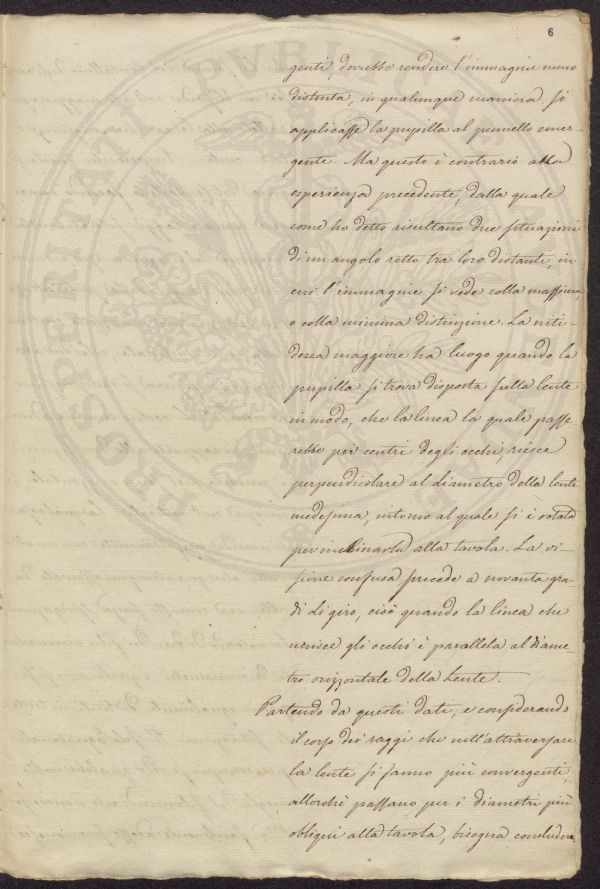 6
genti, dovrebbe rendere l'immagine meno
distinta, in qualunque maniera si
applicasse la pupilla al pennello emer-
gente. Ma questo è contrario alla
esperienza precedente, dalla quale
come ho detto risultano due situazioni
di un angolo retto tra loro distanti, in
cui l'immagine si vede colla massima,
o colla minima distinzione. La niti-
dezza maggiore ha luogo quando la
pupilla si trova disposta sulla lente
in modo, che la linea la quale passe
rebbe pei centri degli occhi, riesce
perpendicolare al diametro della lente
medesima, intorno al quale si è rotata
per inclinarla alla tavola. La vi-
sione confusa succede a novanta gra-
di di giro, cioè quando la linea che
unisce gli occhi è parallela al diame-
tro orizzontale della Lente.
Partendo da questi dati, e considerando
il corpo dei raggi che nell'attraversare
la lente si fanno più convergenti,
allorchè passano per i diametri più
obliqui alla tavola, bisogna concludere